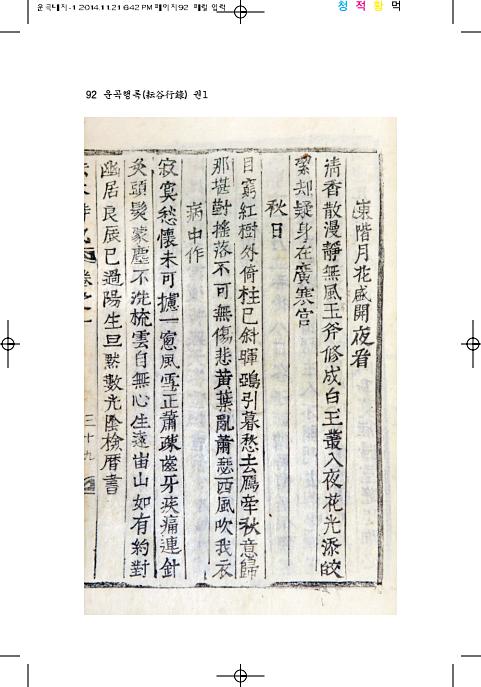 운곡내지-1 2014.11.21 6:42 PM 페이지92 매킬 입력
청 적 황 먹
92 운곡행록(耘谷行錄) 권1
東階月花盛開夜看
淸香散漫靜無風玉斧修成白玉叢入夜花光添皎
絜却疑身在廣寒宮
秋日
目窮紅樹外倚柱已斜暉鴉引暮愁去鴈牽秋意歸
那堪對搖落不可無傷悲黃葉亂蕭瑟西風吹我衣
病中作
寂寞愁懷未可攄一窻風雪正蕭疎齒牙疾痛連針
灸頭髮蒙塵不洗梳雲自無心生遠宙山如有約對
幽居良辰已過陽生旦黙數光陰檢曆書
三十九